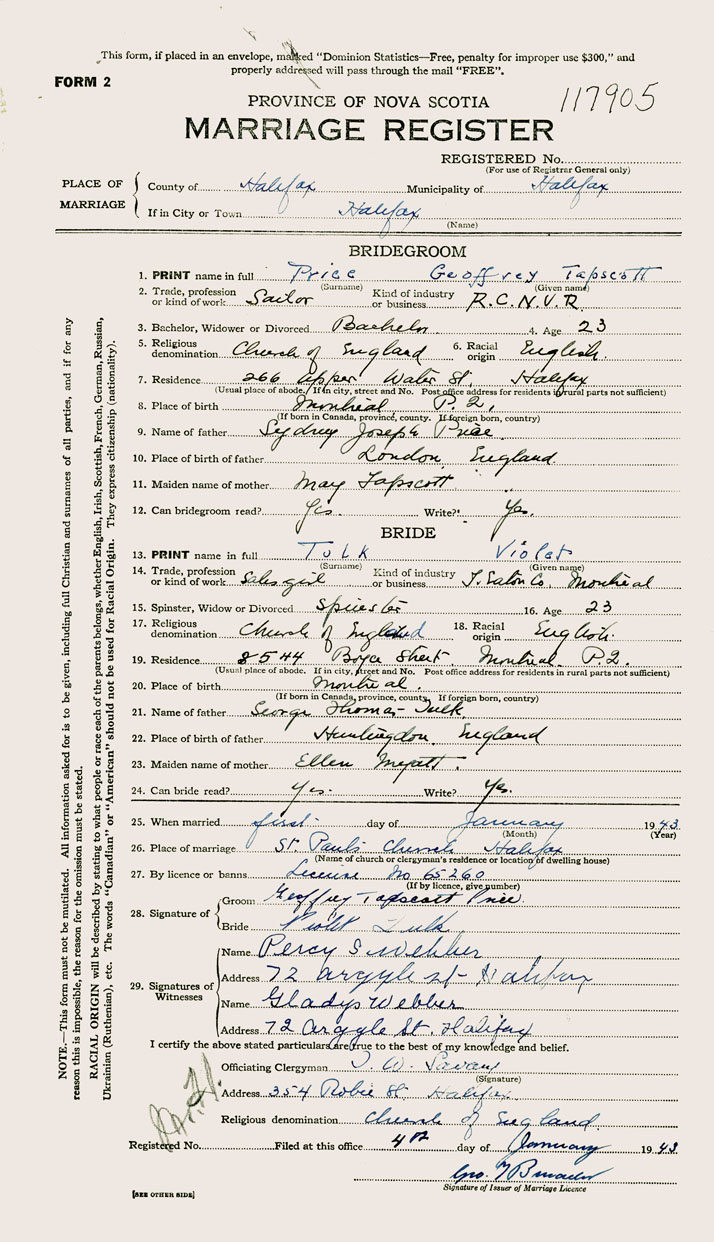 This form, if placed in an envelope, marked "Dominion Statistics—Free, penalty for improper use $300," and
properly addressed will pass through the mail "FREE".
FORM 2
PROVINCE OF NOVA SCOTIA
117905
MARRIAGE REGISTER
REGISTERED No.
(For use of Registrar General only)
PLACE OF MARRIAGE
County of Halifax Municipality of Halifax
If in City or Town Halifax
(Name)
BRIDEGROOM
1. PRINT name in full Price Geoffrey Tapscott
(Surname) (Given name)
2. Trade, profession or kind of work Sailor Kind of industry or business R.C.N.V.R.
3. Bachelor, Widower or Divorced Bachelor 4. Age 23
5. Religious denomination Church of England 6. Racial origin English.
7. Residence 266 Upper Water St, Halifax
(Usual place of abode. If in city, street and No. Post office address for residents in rural parts not sufficient)
8. Place of birth Montreal P.Q.
(If born in Canada, province, county. If foreign born, country)
9. Name of father Sydney Joseph Price
10. Place of birth of father London England
11. Maiden name of mother May Tapscott
12. Can bridegroom read? Yes. Write? Yes.
BRIDE
13. PRINT name in full Tulk Violet
(Surname) (Given name)
14. Trade, profession or kind of work Sales girl Kind of industry or business Co. Montreal
15. Spinster, Widow or Divorced Spinster 16. Age 23
17. Religious denomination Church of England 18. Racial origin English.
19. Residence 8544 Boyer Street, Montreal P.Q.
(Usual place of abode. If in city, street and No. Post office address for residents in rural parts not sufficient)
20. Place of birth Montreal.
(If born in Canada, province, county. If foreign born, country)
21. Name of father George Thomas Tulk
22. Place of birth of father Huntingdon England
23. Maiden name of mother Ellen
24. Can bride read? Yes. Write? Yes.
25. When married first day of January 1943
(Month) (Year)
26. Place of marriage St. Paul's Church Halifax
(Name of church or clergyman's residence or location of dwelling house)
27. By licence or banns License No 65260
(If by licence, give number)
28. Signature of
Groom Geoffrey Tapscott Price
Bride Violet Tulk
29. Signatures of Witnesses
Name Percy S Webber
Address 72 Argyle st- Halifax
Name Gladys Webber
Address 72 Argyle St. Halifax
I certify the above stated particulars are true to the best of my knowledge and belief.
Officiating Clergyman W. Savary
(Signature)
Address 354 Robie St, Halifax.
Religious denomination Church of England.
Registered No. Filed at this office 4th day of January 1943
Signature of Issuer of Marriage Licence
[SEE OTHER SIDE]
NOTE.—This form must not be mutilated. All information asked for is to be given, including full Christian and surnames of all parties, and if for any
reason this is impossible, the reason for the omission must be stated.
RACIAL ORIGIN will be described by stating to what people or race each of the parents belongs, whether English, Irish, Scottish, French, German, Russian,
Ukrainian (Ruthenian), etc. The words "Canadian" or "American" should not be used for Racial Origin. They express citizenship (nationality).